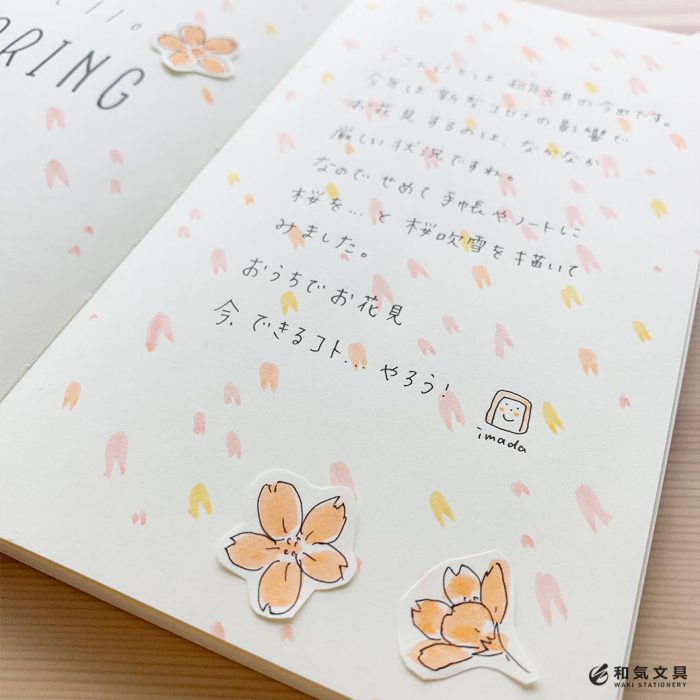 llo。
RING
こんにちは 和気文具の今田です。
今年は新型コロナの影響で
お花見するのは、なかなか
厳しい状況ですね。
なのでせめて手帳やノートに
桜を… と 桜吹雪を描いて
みました。
おうちでお花見
今、できるコト… やろう!
imada
和気文具
WAKI STATIONERY